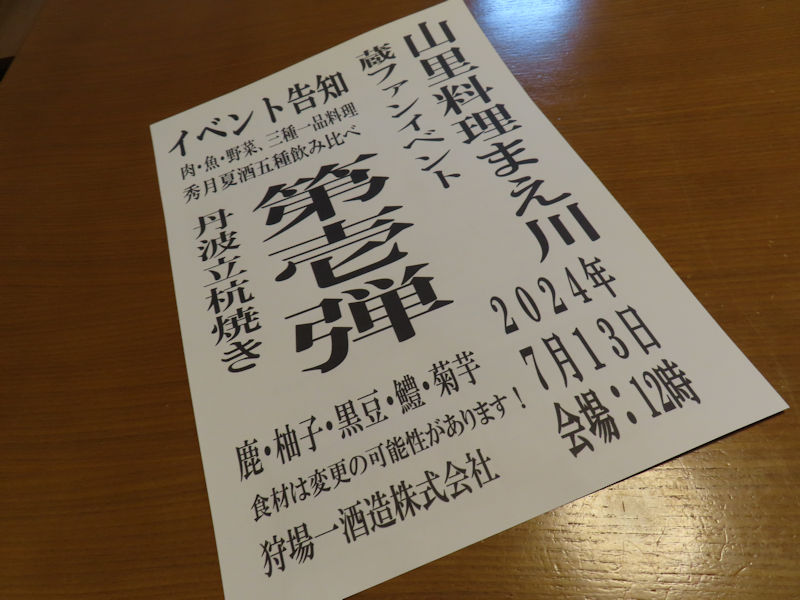 山里料理まえ川
蔵ファンイベント
イベント告知
肉・魚・野菜、三種一品料理
秀月夏酒五種飲み比べ
第壱弾
丹波立杭焼き
2024年
7月13日
会場：12時
鹿・柚子・黒豆・鱧・菊芋
食材は変更の可能性があります！
狩場一酒造株式会社